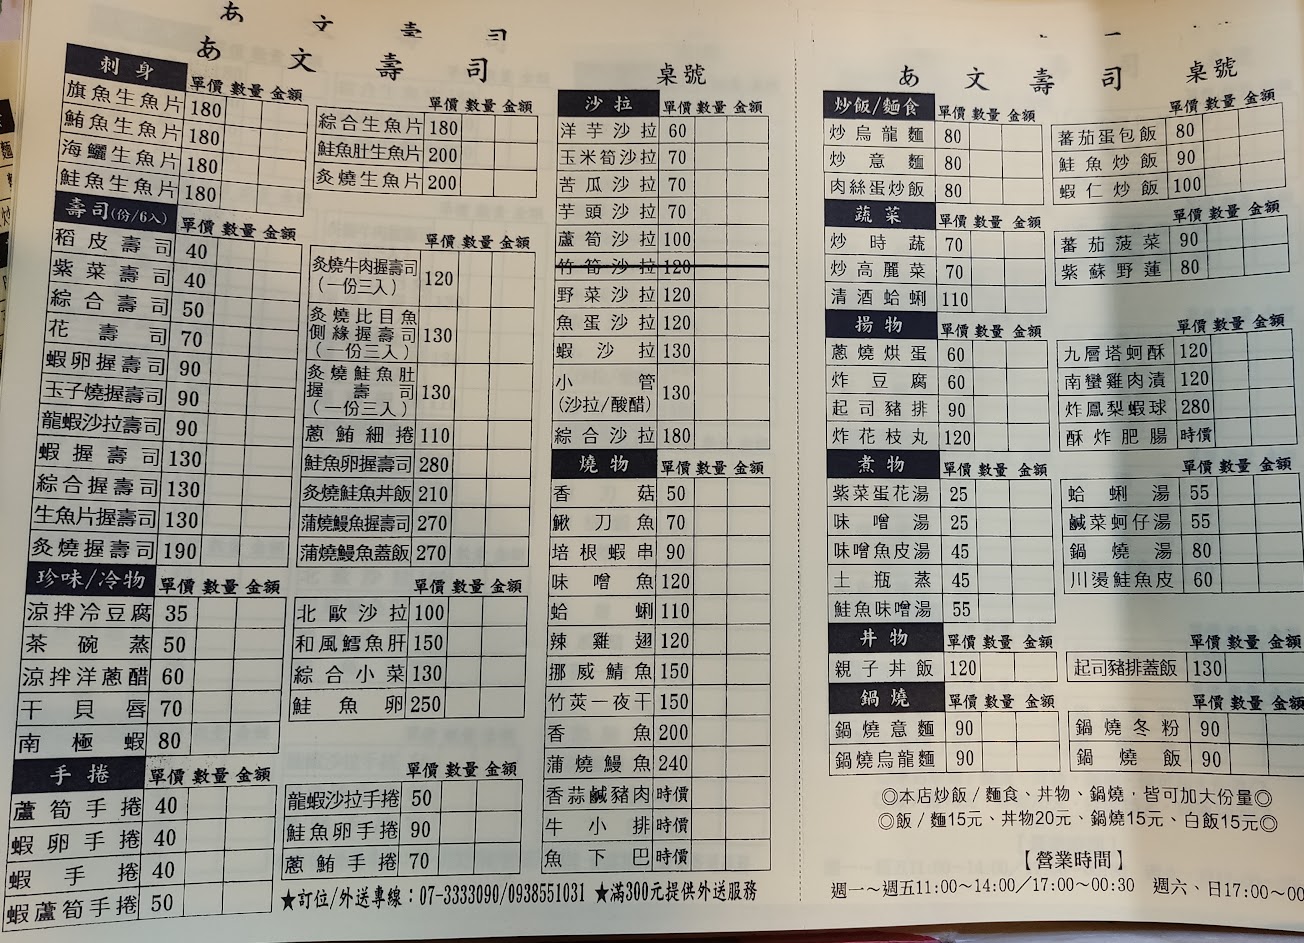 あ文壽司
あ文壽司 桌號
刺身 單價 數量 金額
旗魚生魚片 180
鮪魚生魚片 180
海鱺生魚片 180
鮭魚生魚片 180
單價 數量 金額
綜合生魚片 180
鮭魚肚生魚片 200
炙燒生魚片 200
壽司(份/6入) 單價 數量 金額
稻皮壽司 40
紫菜壽司 40
綜合壽司 50
花壽司 70
蝦卵握壽司 90
玉子燒握壽司 90
龍蝦沙拉壽司 90
蝦握壽司 130
綜合握壽司 130
生魚片握壽司 130
炙燒握壽司 190
單價 數量 金額
炙燒牛肉握壽司
(一份三入) 120
炙燒比目魚
側緣握壽司 130
(一份三入)
炙燒鮭魚肚
握壽司 130
(一份三入)
蔥鮪細捲 110
鮭魚卵握壽司 280
炙燒鮭魚丼飯 210
蒲燒鰻魚握壽司 270
蒲燒鰻魚蓋飯 270
珍味/冷物 單價 數量 金額
涼拌冷豆腐 35
茶碗蒸 50
涼拌洋蔥醋 60
干貝唇 70
南極蝦 80
單價 數量 金額
北歐沙拉 100
和風鱈魚肝 150
綜合小菜 130
鮭魚卵 250
手捲 單價 數量 金額
蘆筍手捲 40
蝦卵手捲 40
蝦手捲 40
蝦蘆筍手捲 50
單價 數量 金額
龍蝦沙拉手捲 50
鮭魚卵手捲 90
蔥鮪手捲 70
沙拉 單價 數量 金額
洋芋沙拉 60
玉米筍沙拉 70
苦瓜沙拉 70
芋頭沙拉 70
蘆筍沙拉 100
竹筍沙拉 120
野菜沙拉 120
魚蛋沙拉 120
蝦沙拉 130
小管
(沙拉/酸醋) 130
綜合沙拉 180
燒物 單價 數量 金額
香菇 50
鰍刀魚 70
培根蝦串 90
味噌魚 120
蛤蜊 110
辣雞翅 120
挪威鯖魚 150
竹莢一夜干 150
香魚 200
蒲燒鰻魚 240
香蒜鹹豬肉 時價
牛小排 時價
魚下巴 時價
★訂位/外送專線：07-3333090/0938551031 ★滿300元提供外送服務
あ文壽司 桌號
炒飯/麵食 單價 數量 金額
炒烏龍麵 80
炒意麵 80
肉絲蛋炒飯 80
單價 數量 金額
蕃茄蛋包飯 80
鮭魚炒飯 90
蝦仁炒飯 100
蔬菜 單價 數量 金額
炒時蔬 70
炒高麗菜 70
清酒蛤蜊 110
單價 數量 金額
蕃茄菠菜 90
紫蘇野蓮 80
揚物 單價 數量 金額
蔥燒烘蛋 60
炸豆腐 60
起司豬排 90
炸花枝丸 120
單價 數量 金額
九層塔蚵酥 120
南蠻雞肉漬 120
炸鳳梨蝦球 280
酥炸肥腸 時價
煮物 單價 數量 金額
紫菜蛋花湯 25
味噌湯 25
味噌魚皮湯 45
土瓶蒸 45
鮭魚味噌湯 55
單價 數量 金額
蛤蜊湯 55
鹹菜蚵仔湯 55
鍋燒湯 80
川燙鮭魚皮 60
丼物 單價 數量 金額
親子丼飯 120
單價 數量 金額
起司豬排蓋飯 130
鍋燒 單價 數量 金額
鍋燒意麵 90
鍋燒烏龍麵 90
單價 數量 金額
鍋燒冬粉 90
鍋燒飯 90
◎本店炒飯/麵食、丼物、鍋燒，皆可加大份量◎
◎飯/麵15元、丼物20元、鍋燒15元、白飯15元◎
【營業時間】
週一～週五11:00～14:00／17:00～00:30 週六、日17:00～00